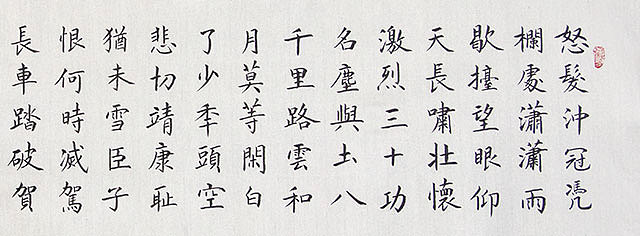 怒髮沖冠凭
欄處瀟瀟雨
歇擡望眼仰
天長嘯壯懷
激烈三十功
名塵與土八
千里路雲和
月莫等閑白
了少秊頭空
悲切靖康耻
猶未雪臣子
恨何時滅駕
長車踏破賀